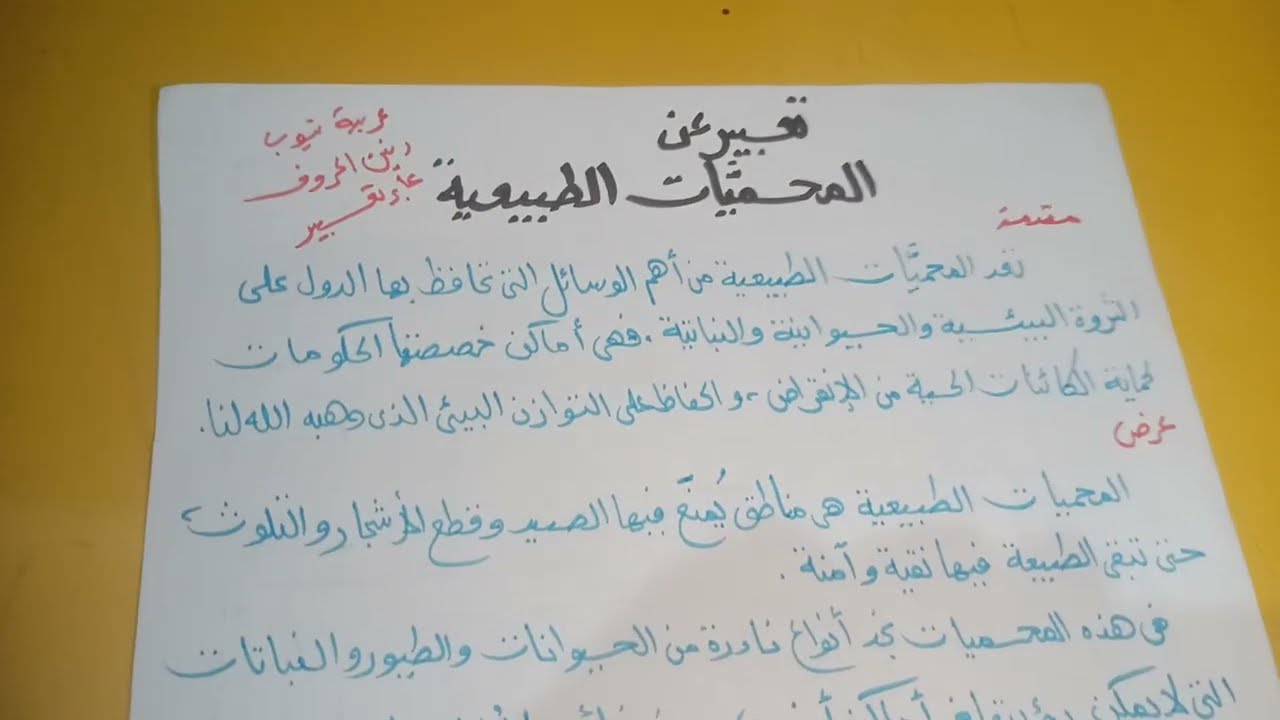 تعبير عن
المحميَّات الطبيعية
عربية تيوب
رنين الحروف
مقدمة
تعد المحميَّات الطبيعية من أهم الوسائل التى تحافظ بها الدول على
الثروة البيئـية والحيوانية والنباتية. فهى أماكن خصصتها الحكومات
لحماية الكائنات الحية من الإنقراض، والحفاظ على التوازن البيئى الذى وهبه الله لنا.
عرض
المحميات الطبيعية هى مناطق يُمنَع فيها الصيد وقطع الأشجار والتلوث،
حتى تبقى الطبيعة فيها نقية وآمنة.
فى هذه المحميات نجد أنواع نادرة من الحيوانات والطيور والنباتات
التى لا يمكن